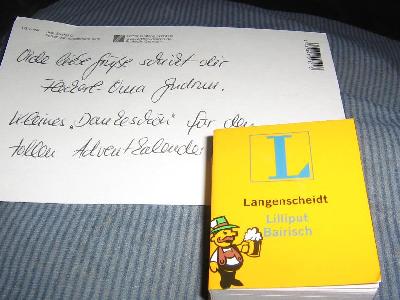 liebe Grüße schickt dir
Oma Gudrun.
Kleines „Dankeschön" für den
tollen Adventkalender
L
Langenscheidt
Lilliput
Bairisch